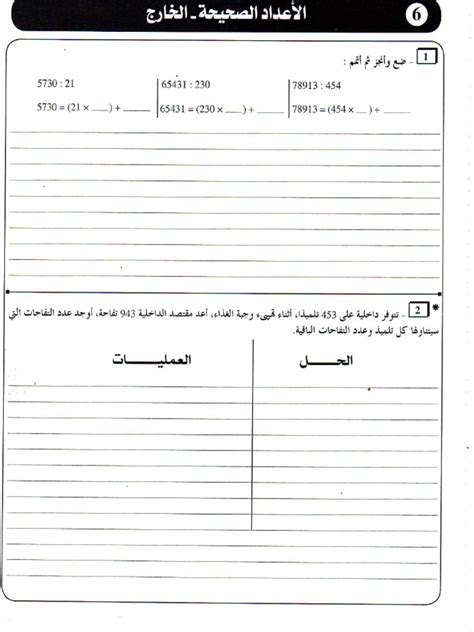 6
الأعداد الصحيحة - الخارج
1 - ضع وأنجز ثم أتمم :
5730 : 21
65431 : 230
78913 : 454
5730 = (21 × ___) + ____
65431 = (230 × ___) + ____
78913 = (454 × ___) + ____
* 2 - تتوفر داخلية على 453 تلميذا، أثناء تهييء وجبة الغذاء، أعد مقتصد الداخلية 943 تفاحة، أوجد عدد التفاحات التي
سيتناولها كل تلميذ وعدد التفاحات الباقية.
الحـــل
العمليـــات